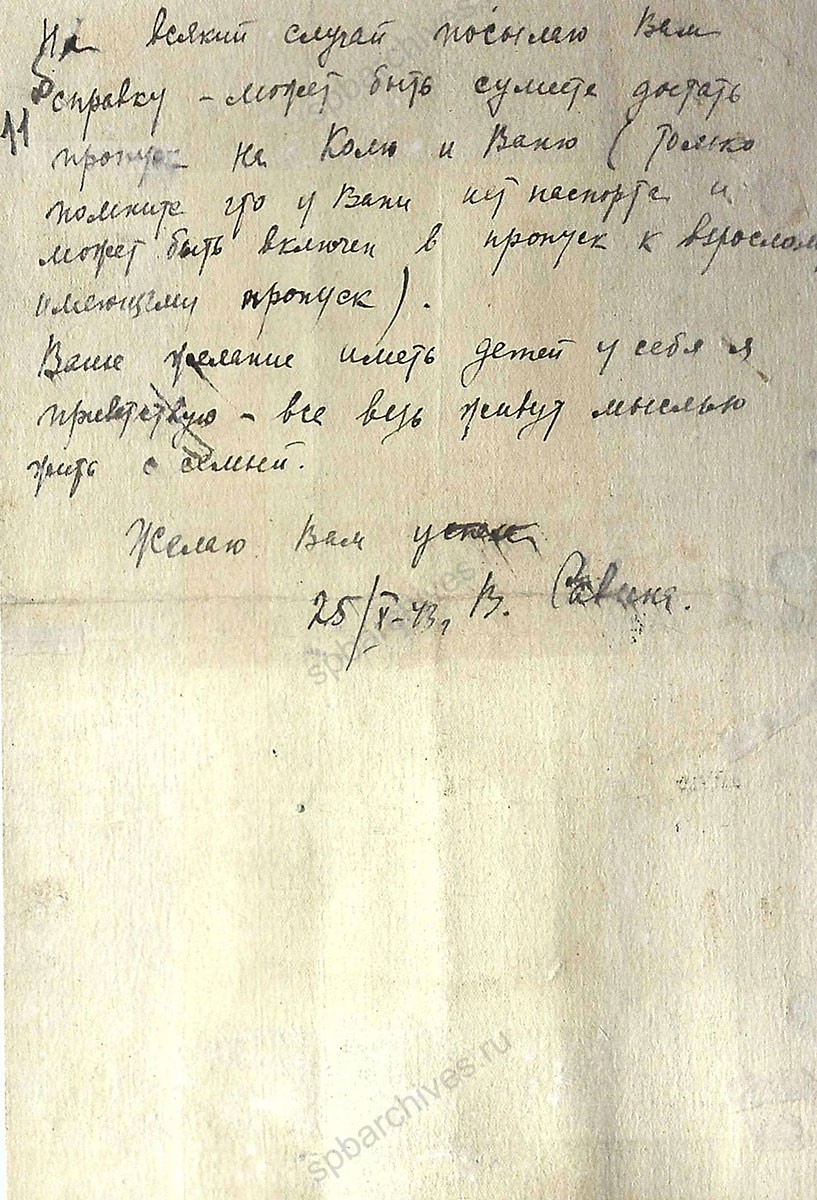 На всякий случай посылаю Вам
справку – может быть сумеете достать
11
пропуск на Колю и Ваню (только
помните что у Вани нет паспорта и
может быть включен в пропуск к взрослому
имеющему пропуск).
Ваше желание иметь детей у себя я
приветствую – все ведь живут мыслью
жить с семьей.
Желаю Вам успех
25/X–43г. В.
spbarchives.ru
spbarchives.ru
spbarchives.ru